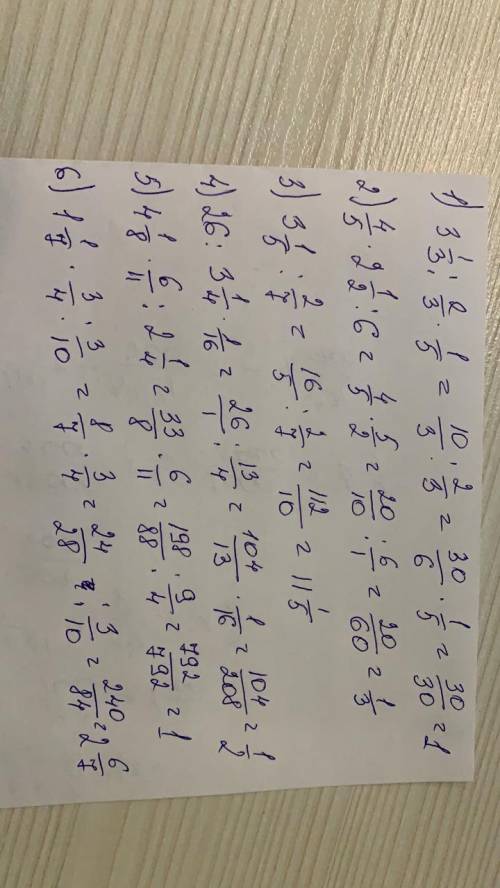 1) 3 1/3 : 2/3 · 1/5 = 10/3 : 2/3 = 30/6 · 1/5 = 30/30 = 1
2) 4/5 · 2 1/2 : 6 = 4/5 · 5/2 = 20/10 : 6/1 = 20/60 = 1/3
3) 3 1/5 : 2/7 = 16/5 : 2/7 = 112/10 = 11 1/5
4) 26 : 3 1/4 · 1/16 = 26/1 : 13/4 = 104/13 · 1/16 = 104/208 = 1/2
5) 4 1/8 · 6/11 : 2 1/4 = 33/8 · 6/11 = 198/88 : 9/4 = 792/792 = 1
6) 1 1/7 · 3/4 : 3/10 = 8/7 · 3/4 = 24/28 : 3/10 = 240/84 = 2 6/7